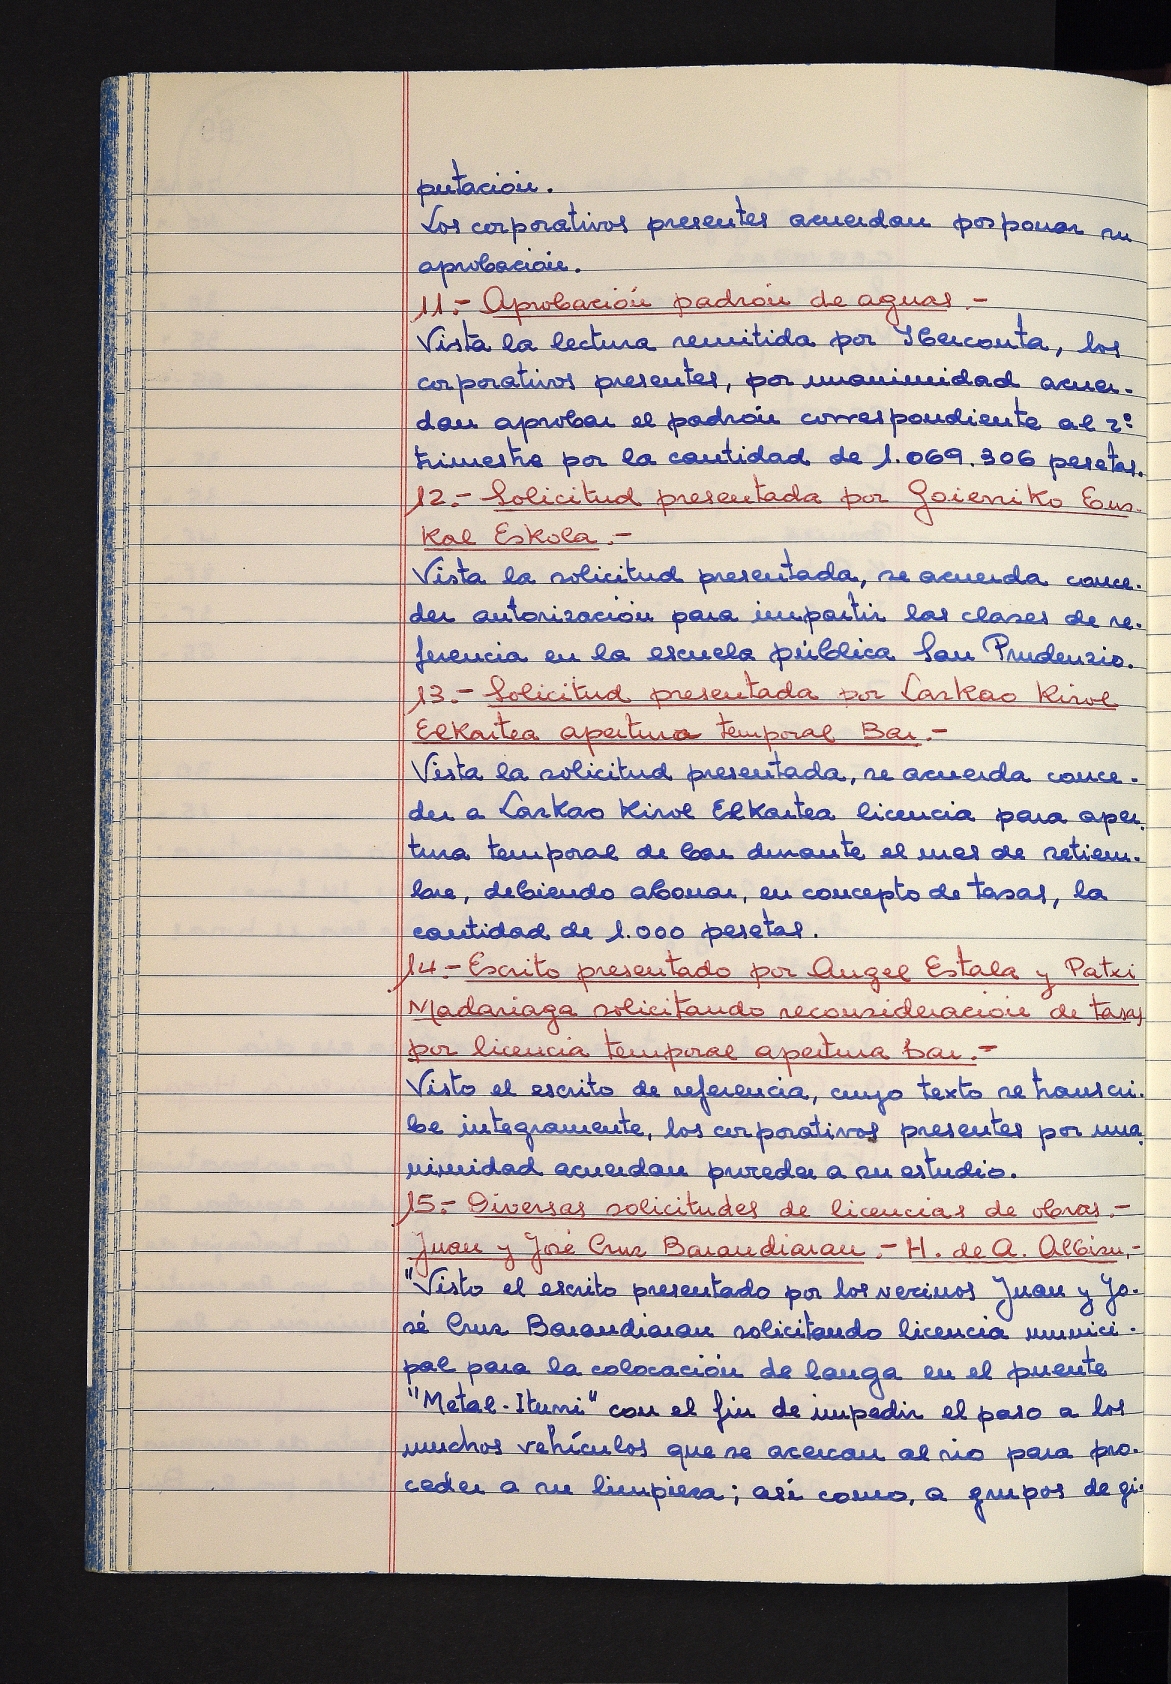 putación.
Los corporativos presentes acuerdan posponer su
aprobación.
11.- Aprobación padrón de aguas.-
Vista la lectura remitida por Iberconta, los
corporativos presentes, por unanimidad acuer-
dan aprobar el padrón correspondiente al 2º
trimestre por la cantidad de 1.069.306 pesetas.
12.- Solicitud presentada por Goierriko Eus-
kal Eskola.-
Vista la solicitud presentada, se acuerda conce-
der autorización para impartir las clases de re-
ferencia en la escuela pública San Prudenzio.
13.- Solicitud presentada por Lazkao Kirol
Elkartea apertura temporal Bar.-
Vista la solicitud presentada, se acuerda conce-
der a Lazkao Kirol Elkartea licencia para aper-
tura temporal de bar durante el mes de setiem-
bre, debiendo abonar, en concepto de tasas, la
cantidad de 1.000 pesetas.
14.- Escrito presentado por Angel Estala y Patxi
Madariaga solicitando reconsideración de tasas
por licencia temporal apertura bar.-
Visto el escrito de referencia, cuyo texto se transcri-
be integramente, los corporativos presentes por una-
nimidad acuerdan proceder a su estudio.
15.- Diversas solicitudes de licencias de obras.-
Juan y José Cruz Barandiaran.- H. de A. Albizu.-
"Visto el escrito presentado por los vecinos Juan y Jo-
sé Cruz Barandiaran solicitando licencia munici-
pal para la colocación de langa en el puente
"Metal-Iturri" con el fin de impedir el paso a los
muchos vehículos que se acercan al rio para pro-
ceder a su limpieza; así como, a grupos de gi-